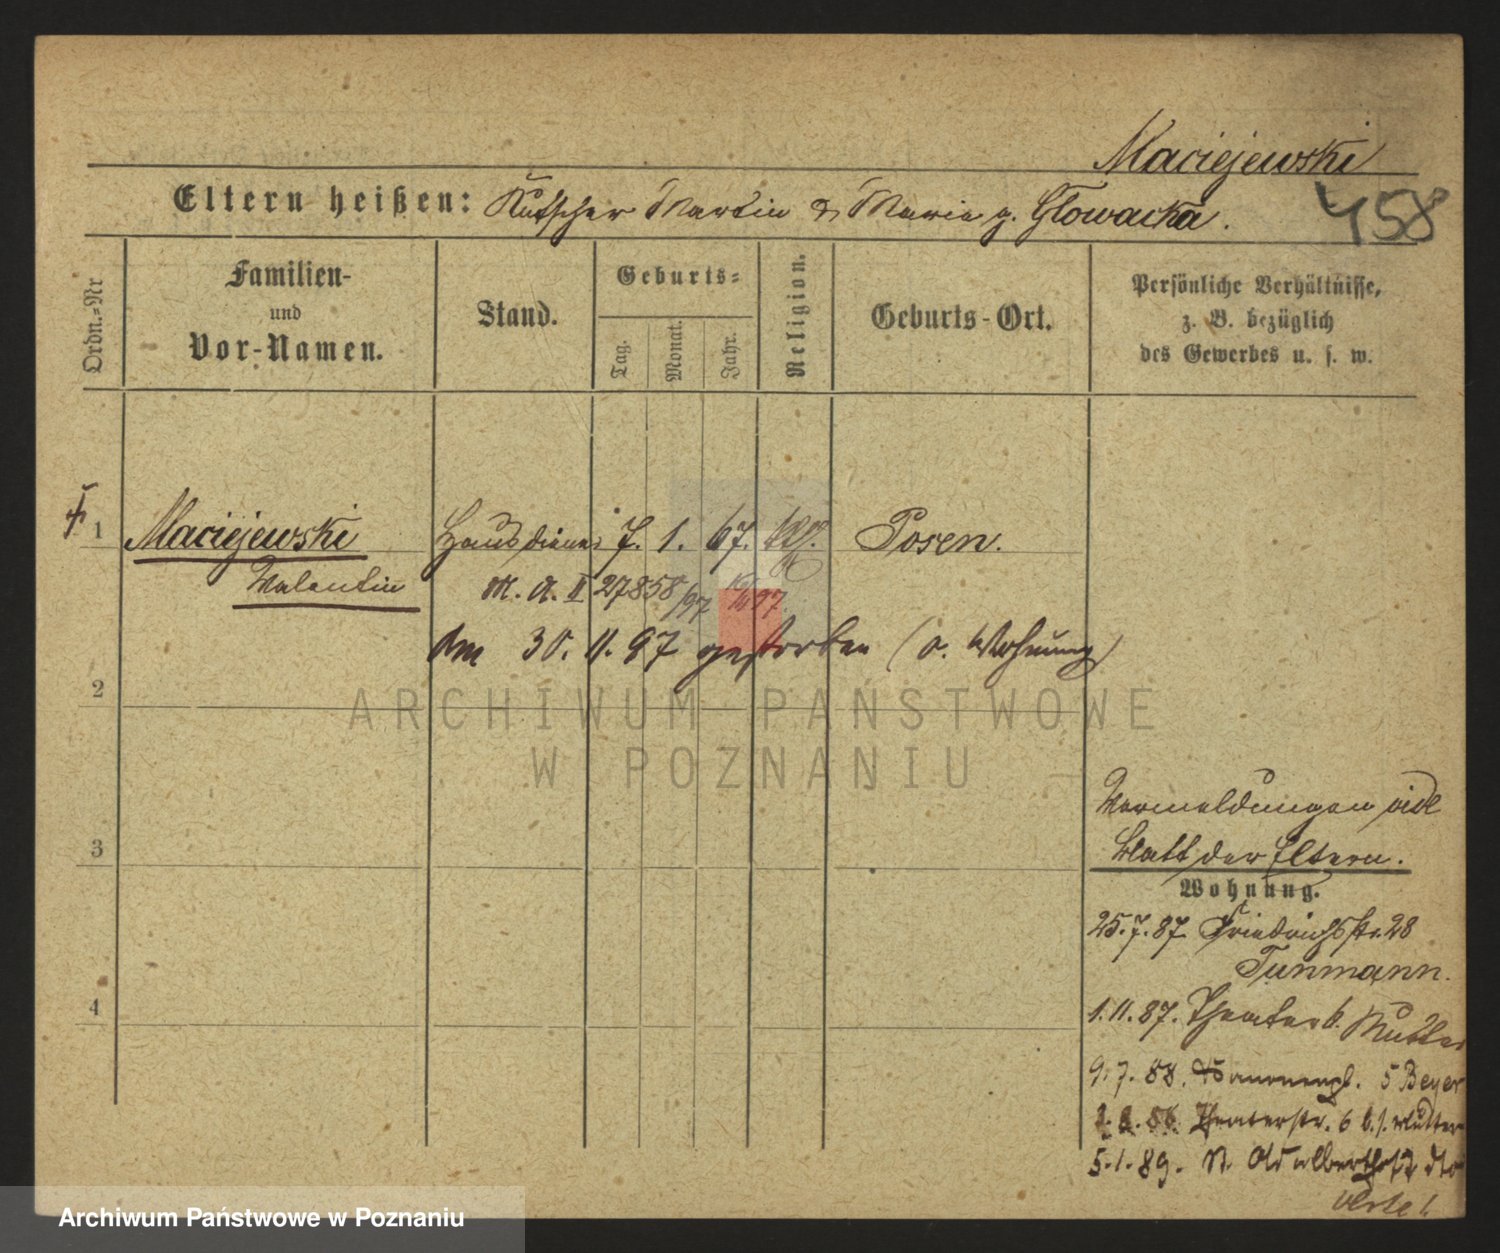 Maciejewski
Eltern heißen: Kutscher Martin & Maria g. Głowacka.
458
Ordn.-Nr
Familien-
und
Vor-Namen.
Stand.
Geburts-
Tag.
Monat.
Jahr.
Religion.
Geburts-Ort.
Persönliche Verhältnisse,
z. B. bezüglich
des Gewerbes u. s. w.
1 Maciejewski Hausdiener 7. 1. 67. Posen.
Valentin M. A. II 27858/97
Am 30. 11. 97 gestorben (o. Wohnung)
2
ARCHIWUM PAŃSTWOWE
W POZNANIU
3
Vermeldungen vide
Blatt der Eltern.
Wohnung.
25.7.87 Friedrichsstr. 28
Tunmann.
4
1.11.87. Theater 6. Mutter
9.7.88. 5 Beyer
Theaterstr. 6 b. s. Mutter
5.1.89. St. Adalbert dto
Archiwum Państwowe w Poznaniu